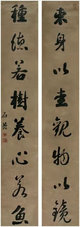 束身以圭觀物以鏡
種德若樹養心若魚